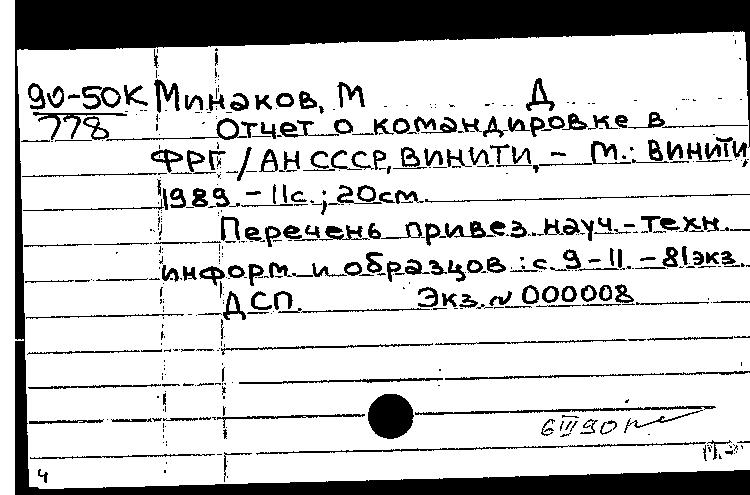 90-50К Минаков, М Д
778 Отчет о командировке в
ФРГ / АН СССР, ВИНИТИ, – М.: ВИНИТИ,
1989. – 11с.; 20см.
Перечень привез. науч.-техн.
информ. и образцов: с. 9-11. – 81экз.
ДСП. Экз. № 000008
6 III 90
4